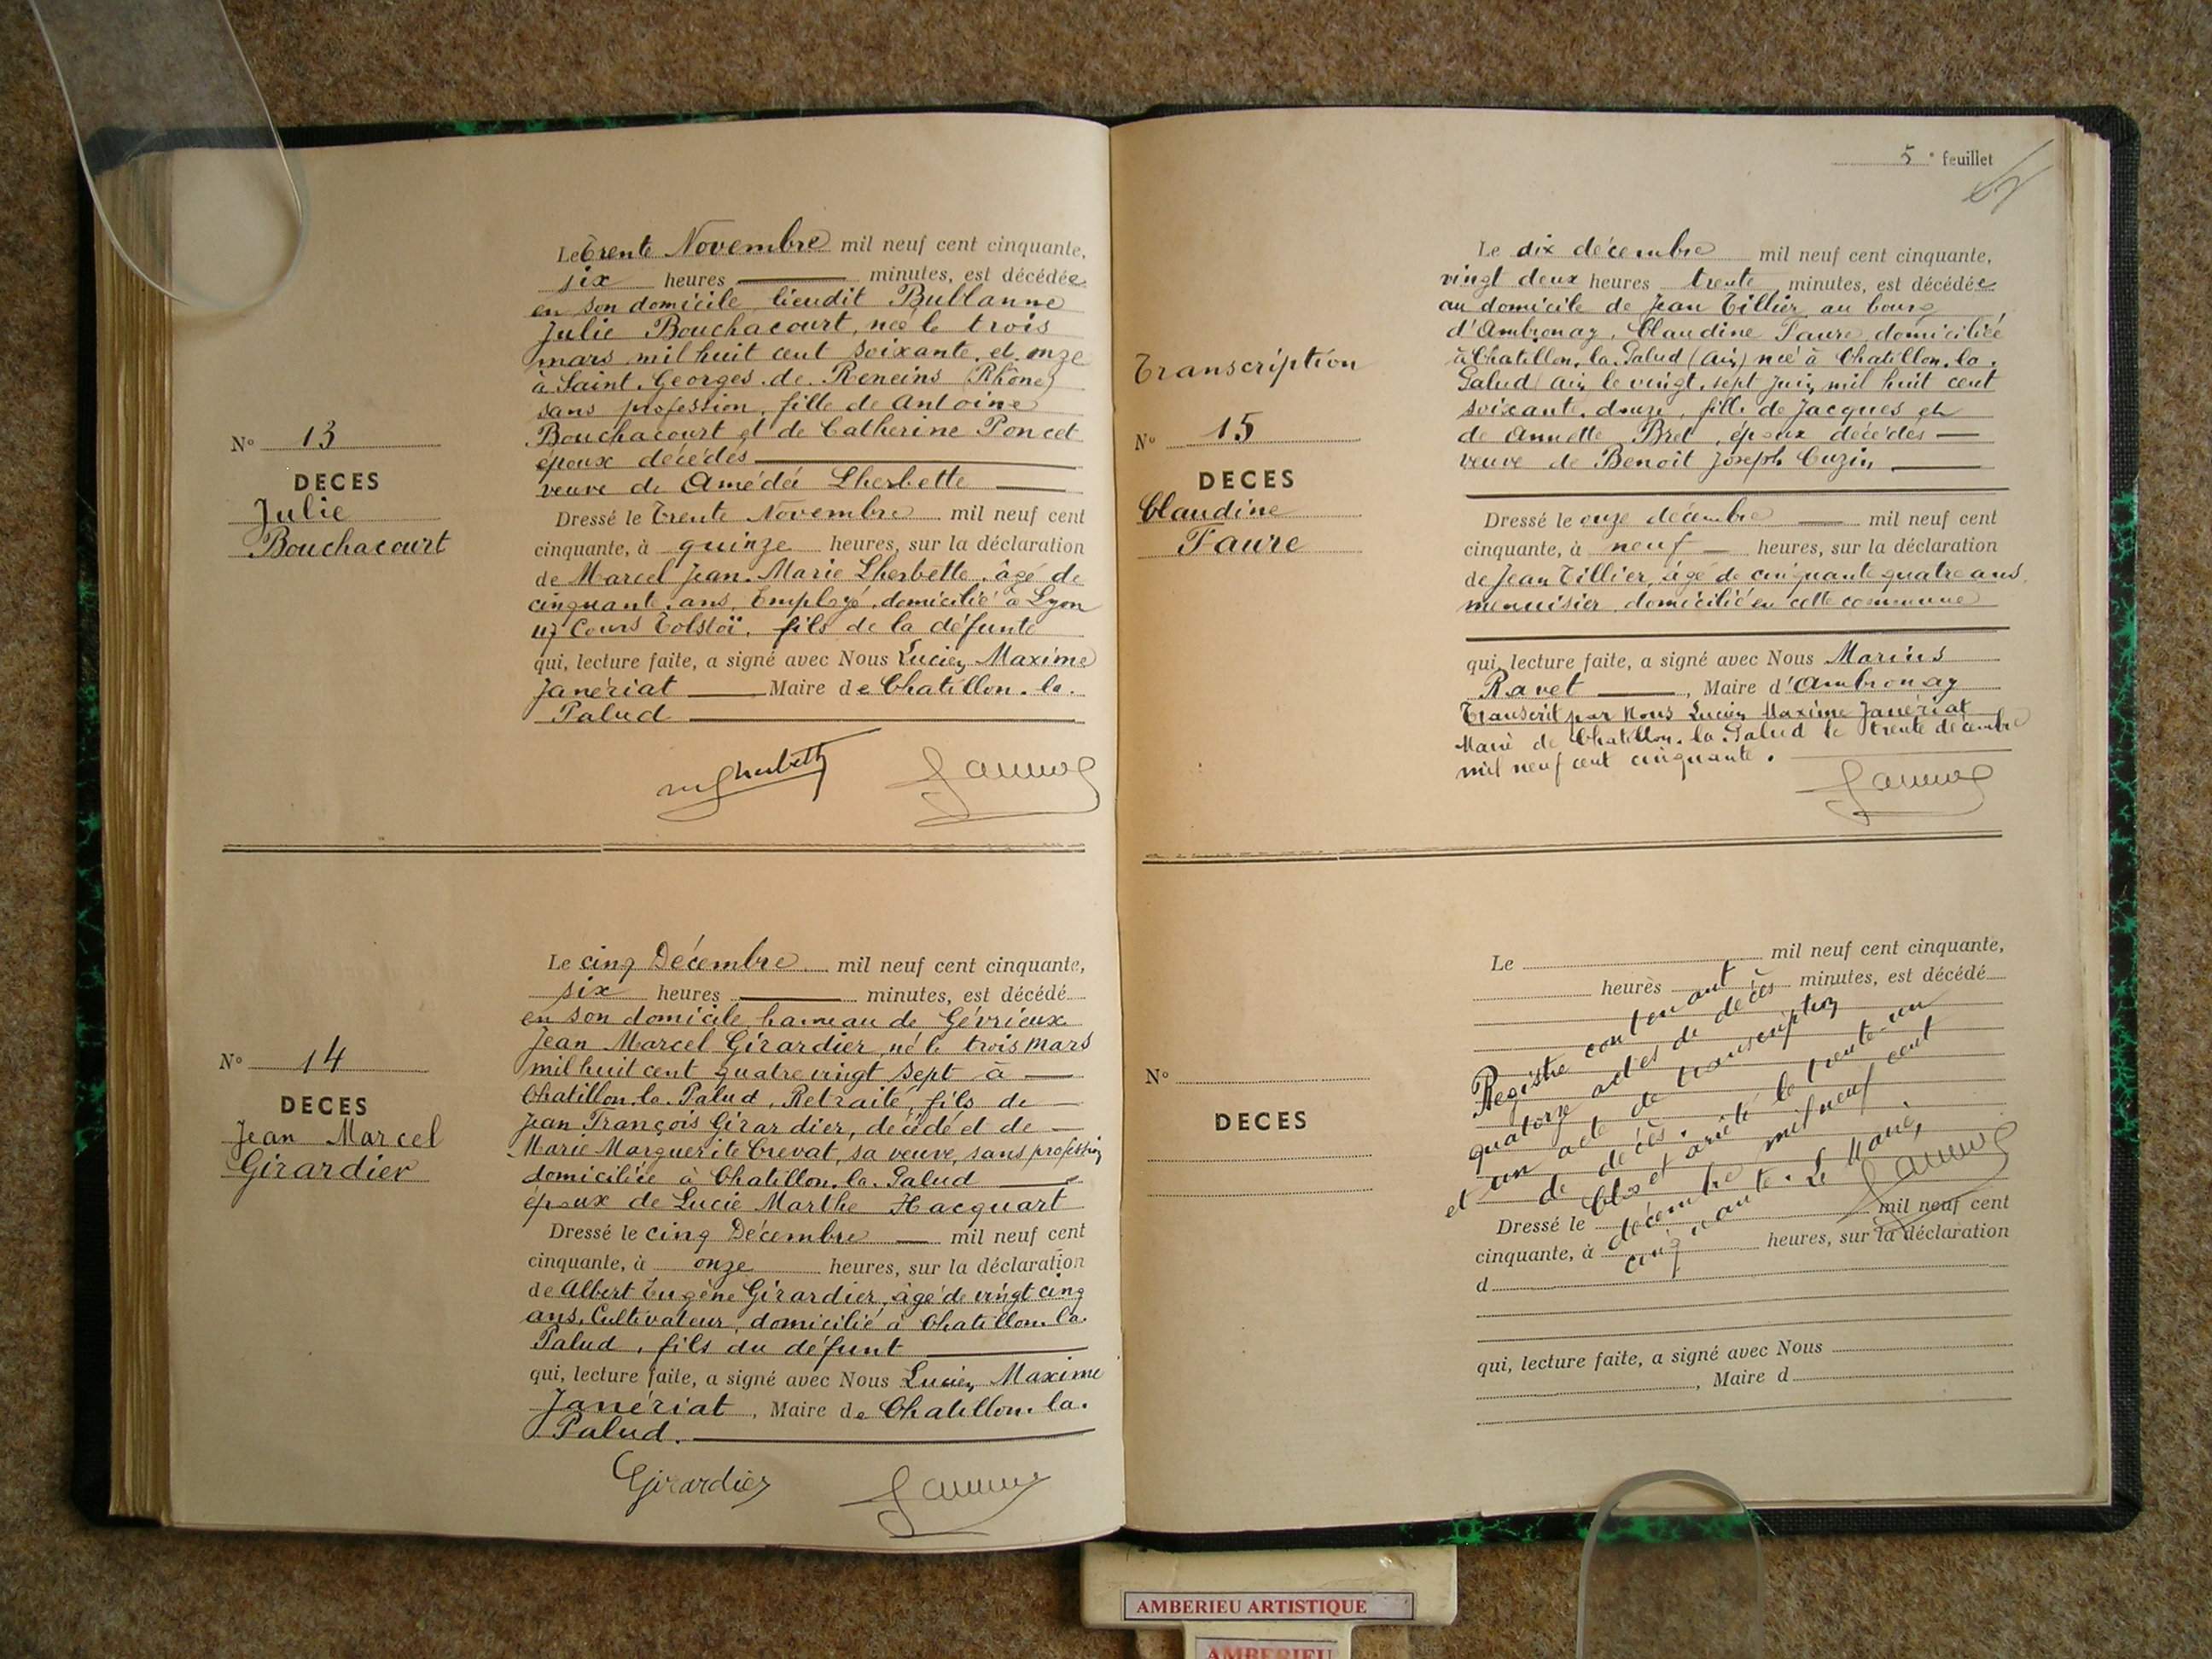 Le Trente Novembre mil neuf cent cinquante,
six heures minutes, est décédée
en son domicile, lieudit Bublanne
Julie Bouchacourt, née le trois
mars mil huit cent soixante et onze
à Saint. Georges. de. Reneins (Rhône)
sans profession, fille de Antoine
Bouchacourt et de Catherine Poncet
époux décédés
veuve de Amédée Lherbette
N° 13
DECES
Julie
Bouchacourt
Dressé le Trente Novembre mil neuf cent
cinquante, à quinze heures, sur la déclaration
de Marcel Jean. Marie Lherbette. âgé de
cinquante. ans, Employé, domicilié à Lyon
47 Cours Tolstoï. fils de la défunte
qui, lecture faite, a signé avec Nous Lucien Maxime
Janériat Maire de Chatillon. la.
Palud
Le cinq Décembre mil neuf cent cinquante,
six heures minutes, est décédé
en son domicile hameau de Gévrieux
Jean Marcel Girardier, né le trois mars
mil huit cent quatre vingt sept à
Chatillon. la. Palud, Retraité, fils de
Jean François Girardier, décédé et de
Marie Marguerite Crevat, sa veuve, sans profession
domiciliée à Chatillon. la. Palud
époux de Lucie Marthe Hacquart
N° 14
DECES
Jean Marcel
Girardier
Dressé le cinq Décembre mil neuf cent
cinquante, à onze heures, sur la déclaration
de Albert Eugène Girardier, âgé de vingt cinq
ans, Cultivateur, domicilié à Chatillon. la.
Palud, fils du défunt
qui, lecture faite, a signé avec Nous Lucien Maxime
Janériat, Maire de Chatillon. la.
Palud.
Girardier
5e feuillet
Le dix décembre mil neuf cent cinquante,
vingt deux heures trente minutes, est décédée
au domicile de Jean Tillier au bourg
d'Ambronay, Claudine Faure domiciliée
à Chatillon. la Palud (Ain) née à Chatillon. la.
Palud Ain le vingt. sept juin mil huit cent
soixante. douze, fille de Jacques et
de Annette Bret, époux décédés
veuve de Benoit Joseph Cuzin
Transcription
N° 15
DECES
Claudine
Faure
Dressé le onze décembre mil neuf cent
cinquante, à neuf heures, sur la déclaration
de Jean Tillier, âgé de cinquante quatre ans,
menuisier, domicilié en cette commune
qui, lecture faite, a signé avec Nous Marius
Ravet, Maire d'Ambronay
Transcrit par Nous Lucien Maxime Janériat
Maire de Chatillon. la. Palud le trente décembre
mil neuf cent cinquante.
Le mil neuf cent cinquante,
heures minutes, est décédé
N°
DECES
Registre contenant
quatorze actes de décès
et un acte de transcription
de décès.
Clos et arrêté le trente-un
décembre mil neuf cent
cinquante. Le Maire,
Dressé le mil neuf cent
cinquante, à heures, sur la déclaration
d
qui, lecture faite, a signé avec Nous
, Maire d
AMBERIEU ARTISTIQUE
AMBERIEU